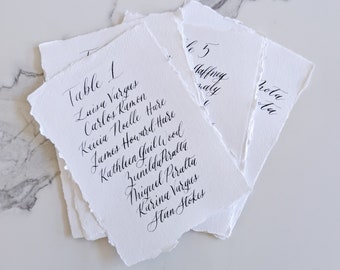 Table 1
Luisa Vargas
Carlos Ramon
Kecia Noelle Hare
James Howard Hare
Kathleen Gail Wood
Zuenilda Peralta
Miguel Peralta
Karina Vargas
Stan Stokes
Ta
5